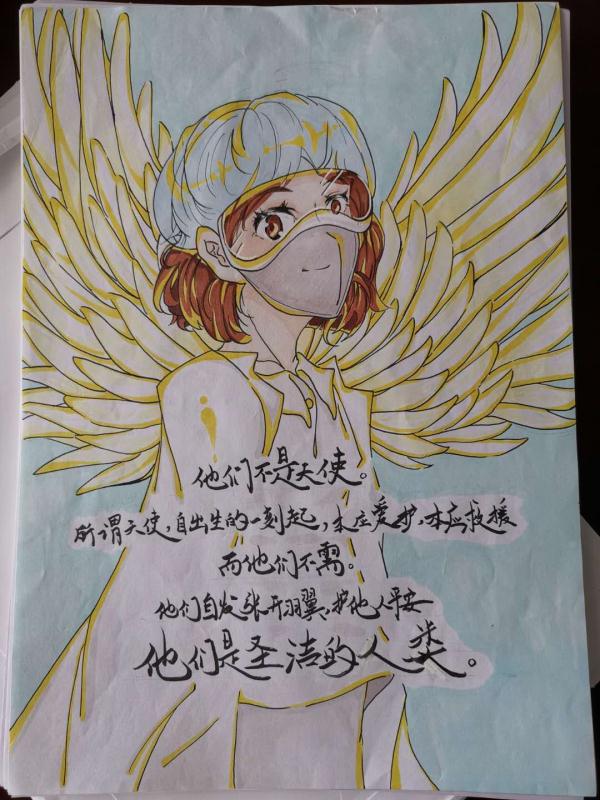 他们不是天使。
所谓天使,自出生的一刻起,本应爱护,本应救援
而他们不需。
他们自发张开羽翼,护他人平安
他们是圣洁的人类。